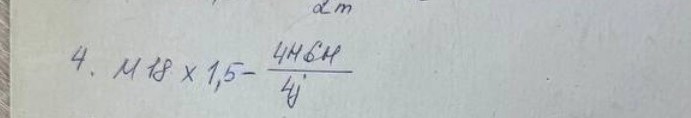 2m
4. М 18 × 1,5 - 4H6H
4j